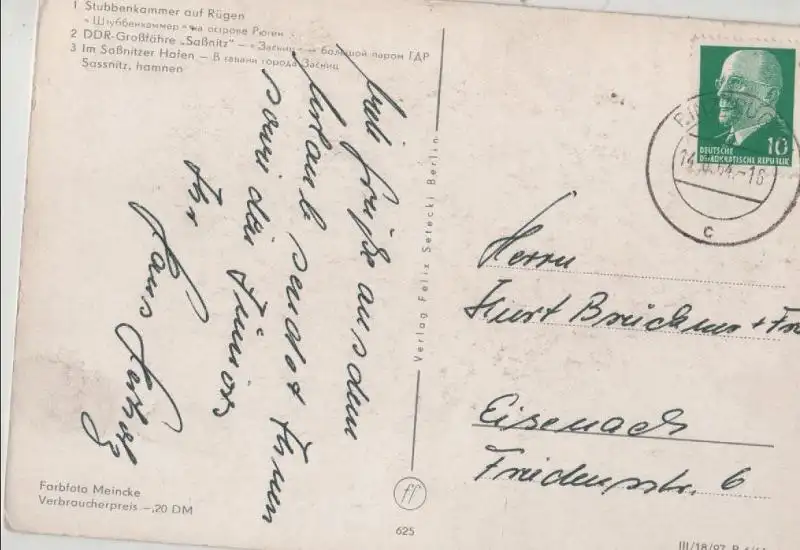 1 Stubbenkammer auf Rügen
«Штуббенкаммер» на острове Рюген
2 DDR-Großfähre „Saßnitz“ – «Засниц» – большой паром ГДР
3 Im Saßnitzer Hafen – В гавани города Засниц
Sassnitz, hamnen
Viele Grüße aus dem
Urlaub sendet Ihnen
sowie die Junior
Ihr
Hans
Farbfoto Meincke
Verbraucherpreis –,20 DM
Verlag Felix Setecki Berlin
625
10
DEUTSCHE
DEMOKRATISCHE REPUBLIK
64.-18
c
Herrn
Kurt Brückner + Fr
Eisenach
Friedensstr. 6
III/18/97